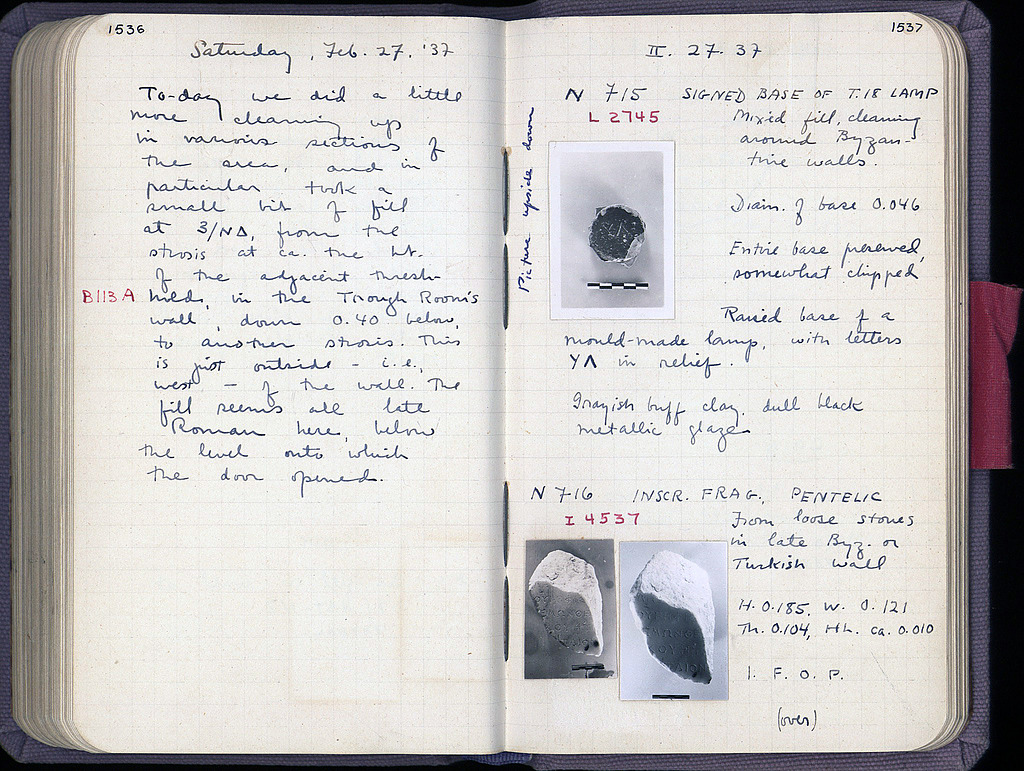 1536
Saturday, Feb. 27. '37
To-day we did a little
more cleaning up
in various sections of
the area, and in
particular took a
small bit of fill
at 3/ΝΔ, from the
strosis at ca. the ht.
of the adjacent thresh-
B113A hold, in the Trough Room's
wall, down 0.40 below,
to another strosis. This
is just outside - i.e.,
west - of the wall. The
fill seems all late
Roman here, below
the level onto which
the door opened.
1537
II. 27. 37
N 715 SIGNED BASE OF T.18 LAMP
L 2745
Mixed fill, cleaning
around Byzan-
tine walls.
Picture upside down
Diam. of base 0.046
Entire base preserved,
somewhat chipped
Raised base of a
mould-made lamp, with letters
ΥΛ in relief.
Grayish buff clay, dull black
metallic glaze
N 716 INSCR. FRAG., PENTELIC
I 4537
From loose stones
in late Byz. or
Turkish wall
H. 0.185, W. 0.121
Th. 0.104, Ht. ca. 0.010
I. F. O. P.
(over)